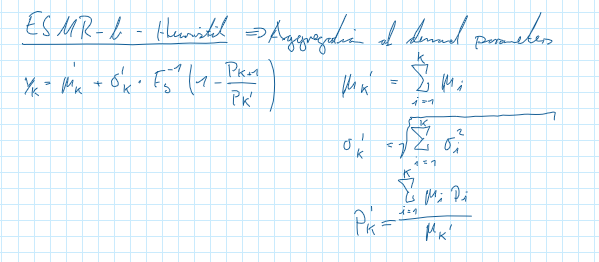 ESMR-b - Heuristik ⇒ Aggregation of demand parameters
y_K = μ_K' + σ_K' · F_S^{-1} (1 - P_{K+1} / P_K')
μ_K' = ∑_{i=1}^{K} μ_i
σ_K' = √(∑_{i=1}^{K} σ_i^2)
P_K' = (∑_{i=1}^{K} μ_i p_i) / μ_K'